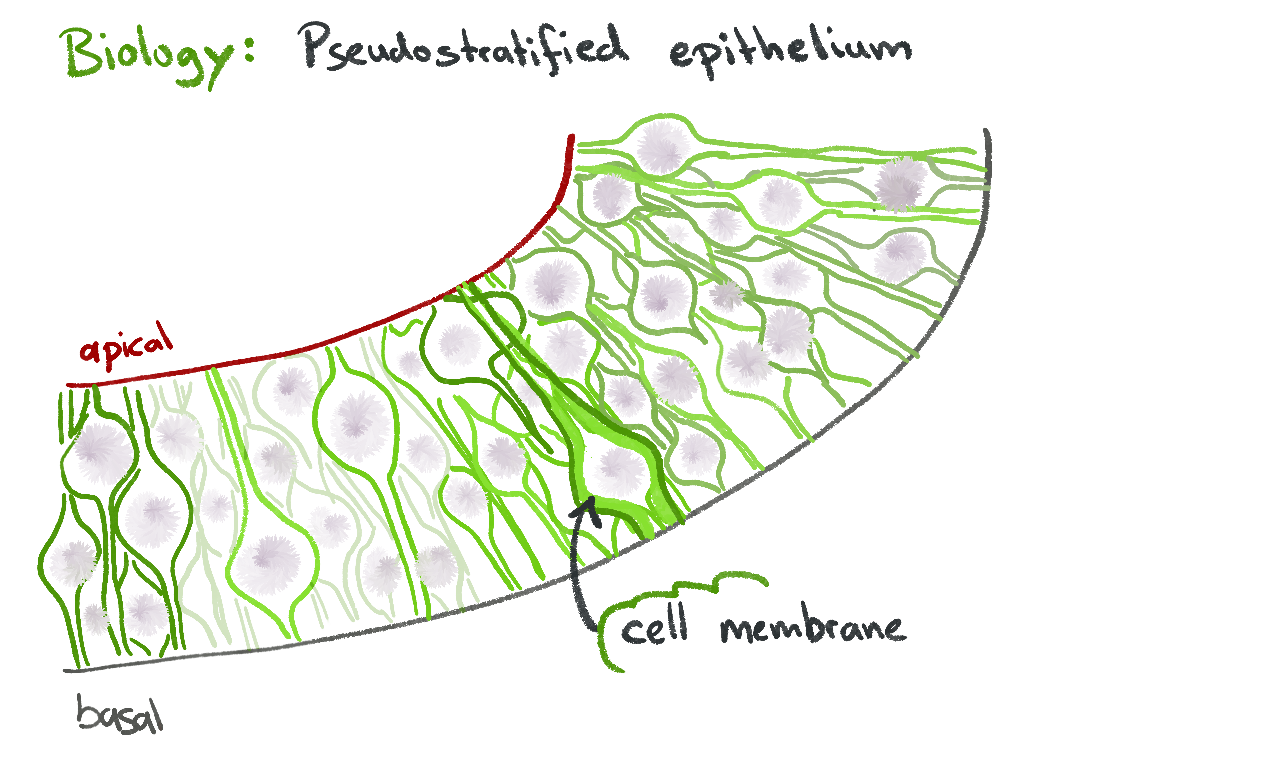 Biology: Pseudostratified epithelium
apical
cell membrane
basal